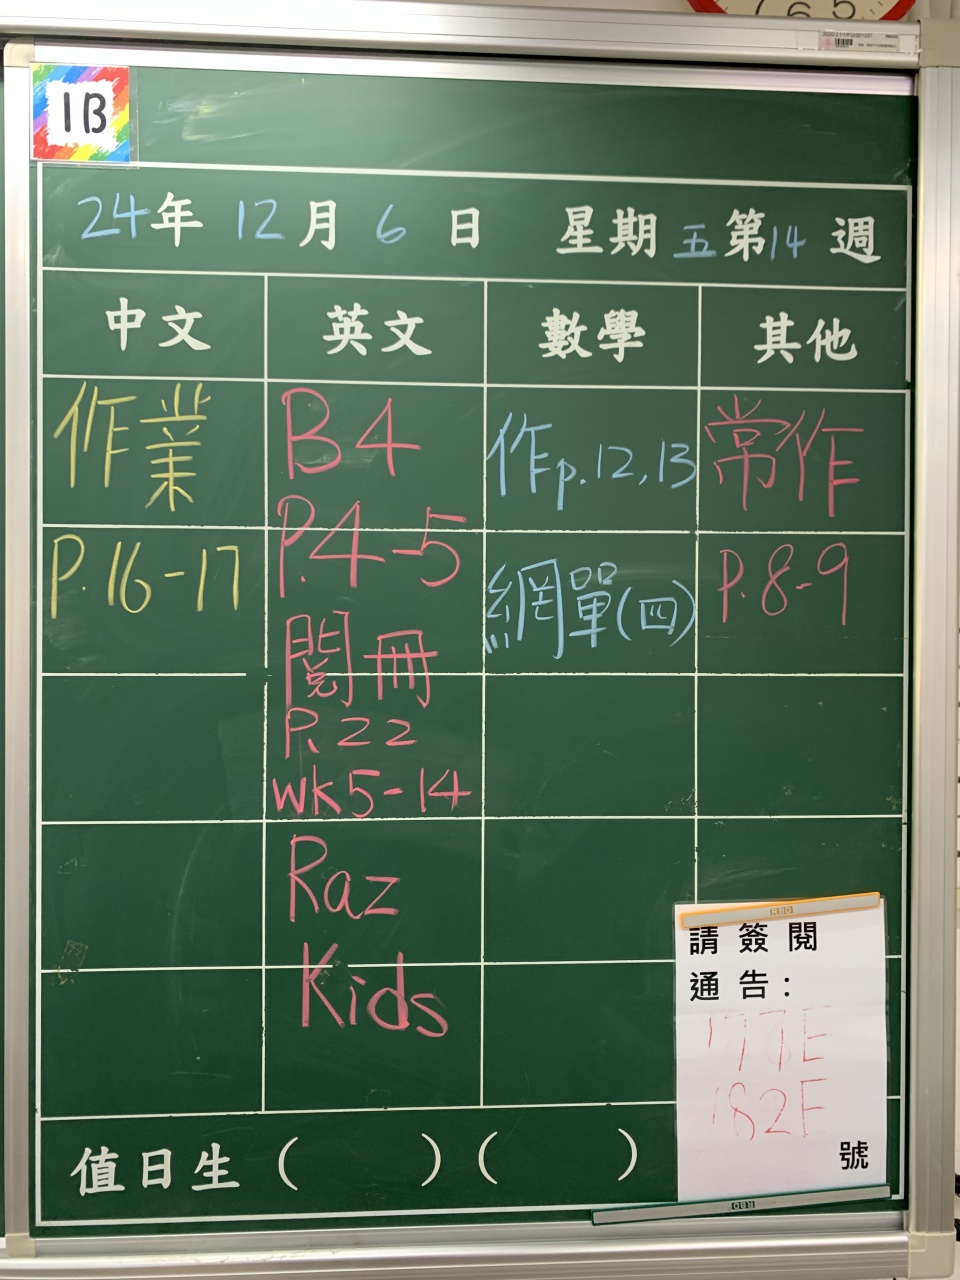 1B
24年 12月 6日 星期五 第14週
中文 英文 數學 其他
作業
P.16-17
B4
P.4-5
閱冊
P.22
wk5-14
Raz
Kids
作p.12,13
網單(四)
常作
P.8-9
請簽閱
通告:
182E
號
值日生 ( ) ( )
RBD
RBD
6 5